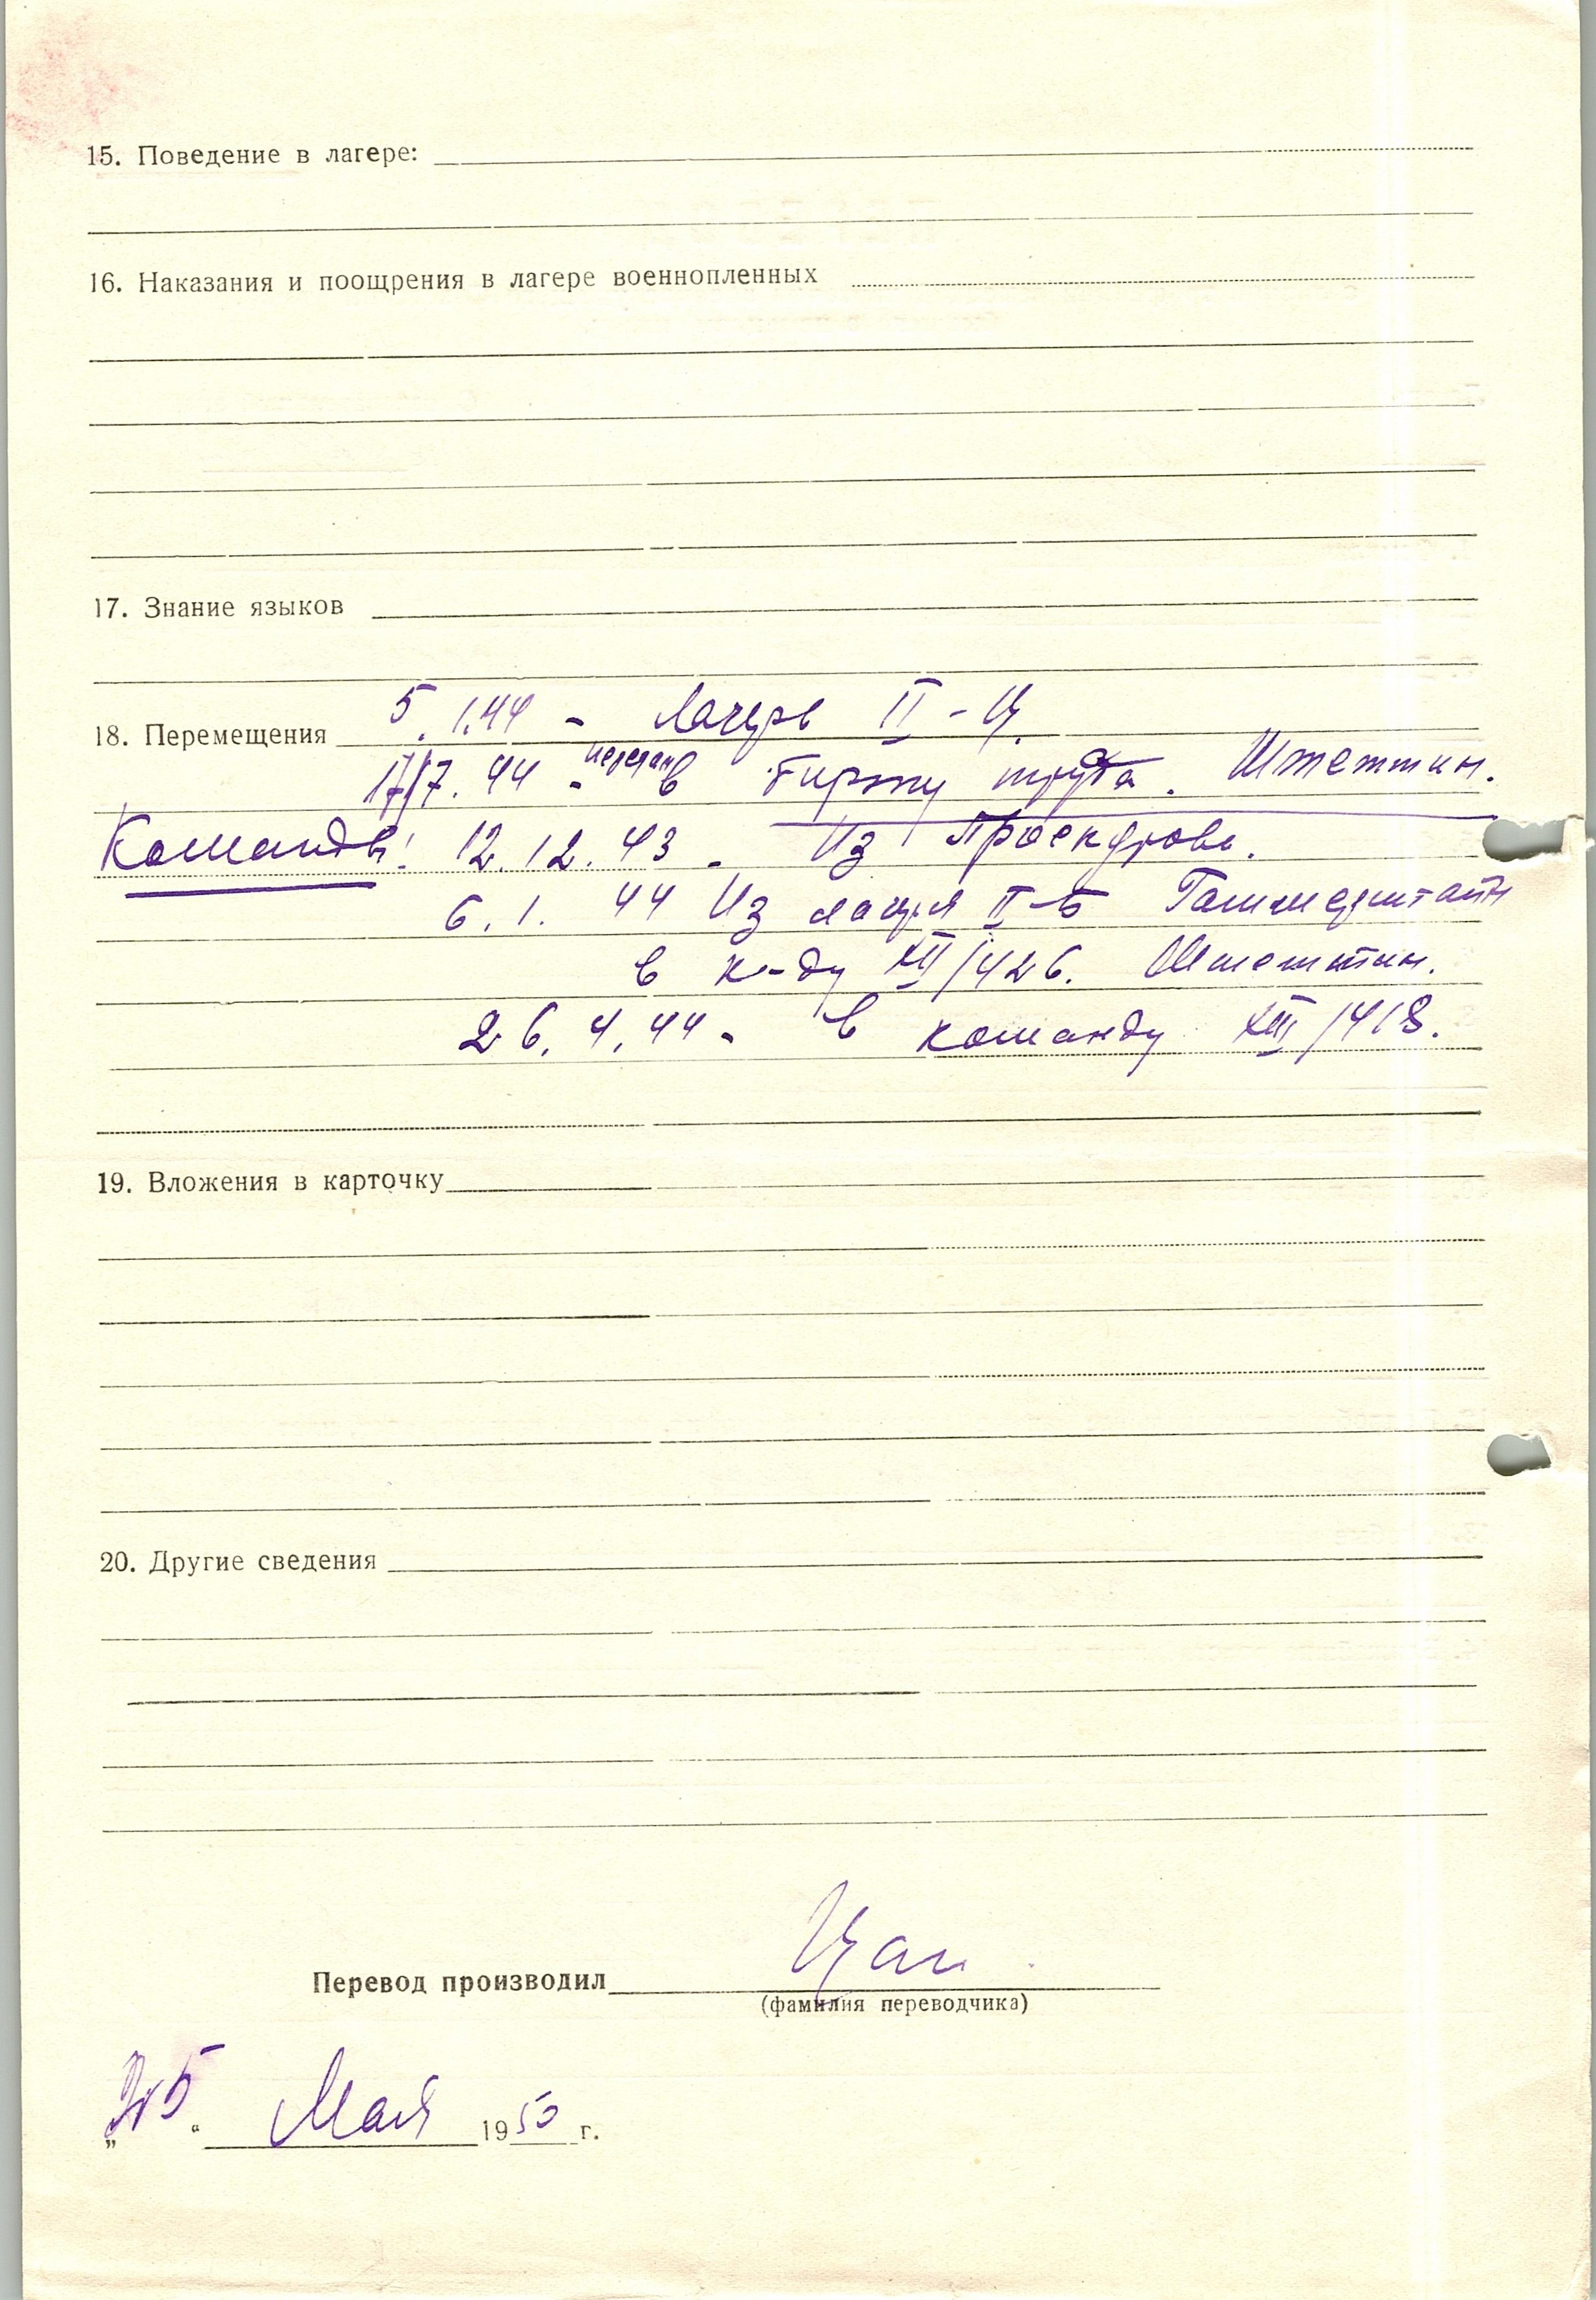 15. Поведение в лагере:
16. Наказания и поощрения в лагере военнопленных
17. Знание языков
18. Перемещения 5.1.44 - Лагерь II-Ц.
17/7.44 - передан в биржу труда. Штеттин.
Команды: 12.12.43 - Из Проскурова.
6.1.44 Из лагеря II-Б Гаммерштайн
в к-ду XII/426. Штеттин.
26.4.44 - в команду XIII/418.
19. Вложения в карточку
20. Другие сведения
Перевод производил
(фамилия переводчика)
„25“ Мая 1950 г.